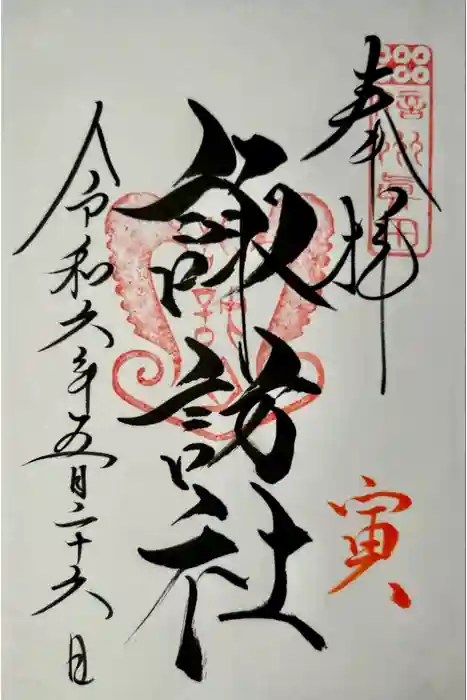 信州真田
奉拝
寅
諏訪社
令和六年五月二十六日